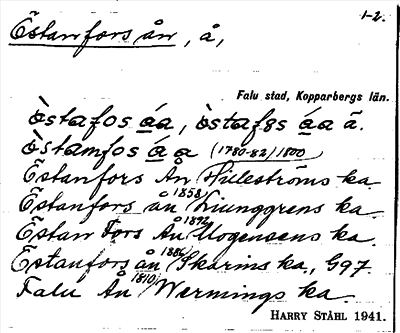 Östanfors ån, å, 1-2.
Falu stad, Kopparbergs län.
östafos åa, östafss åa ä.
östamfos å å (1780-82)/1800
Östanfors Ån/Hülleströms ka
Östanfors ån/1858 Ljunggrens ka
Östan Fors Ån/1892 Mogensens ka.
Östanfors ån/1886 Skarins ka, G97.
Falu Ån/1810 Wermings ka.
HARRY STÅHL 1941.